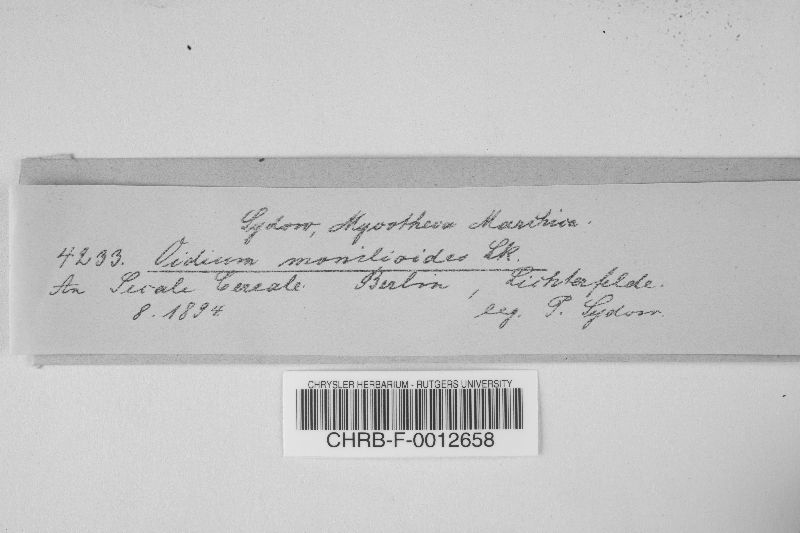 Sydow, Mycotheca Marchica.
4233. Oidium monilioides Lk.
An Secale Cereale. Berlin, Lichterfelde.
8. 1894 leg. P. Sydow.
CHRYSLER HERBARIUM - RUTGERS UNIVERSITY
CHRB-F-0012658